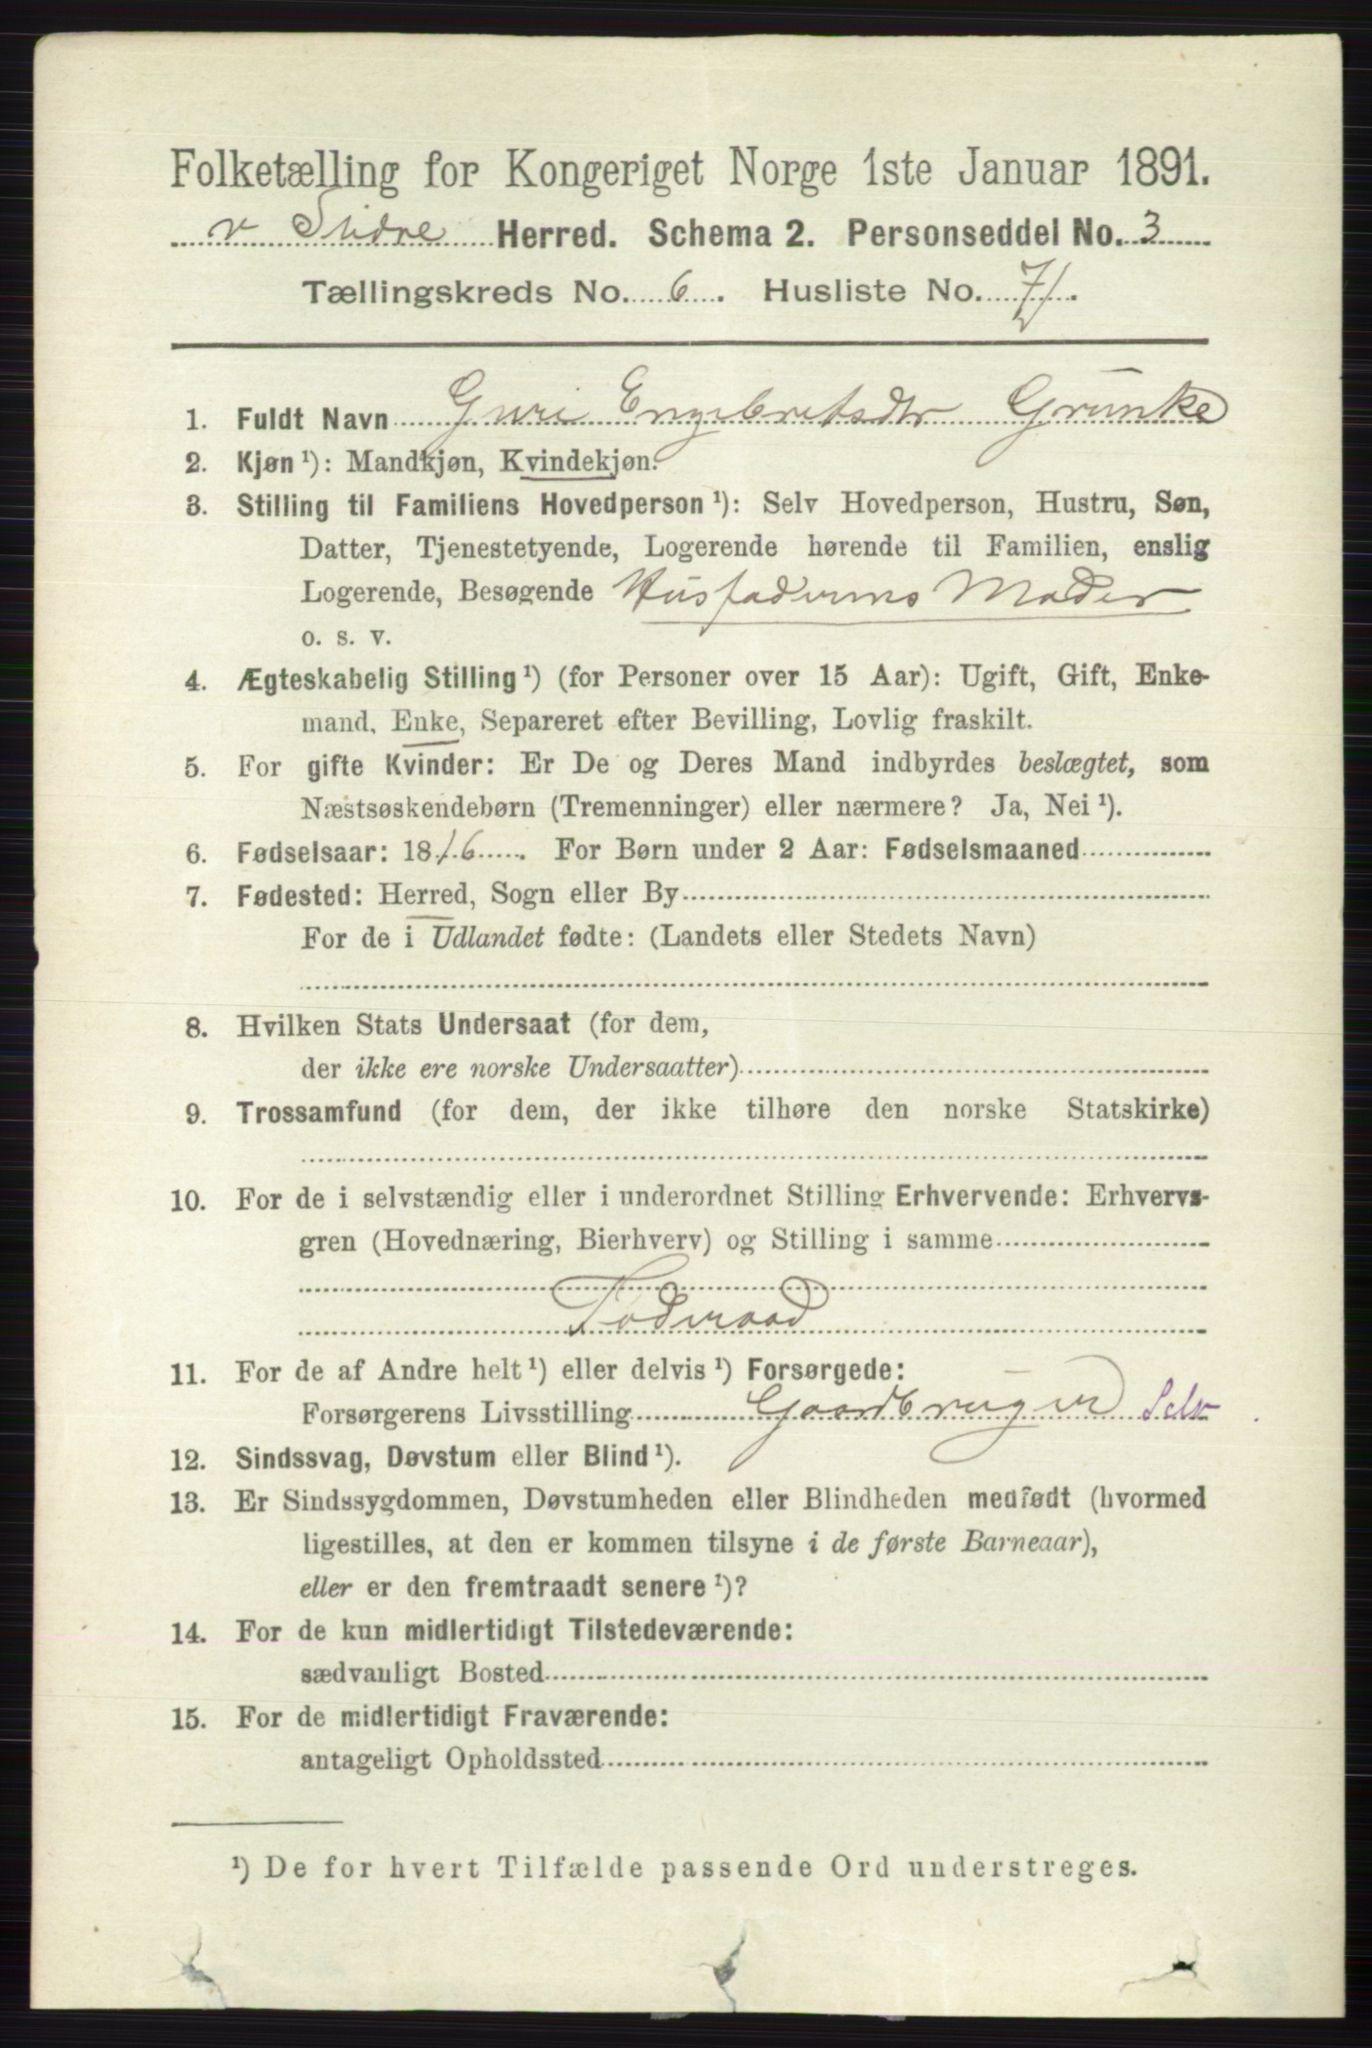 Folketælling for Kongeriget Norge 1ste Januar 1891.
v Slidre Herred. Schema 2. Personseddel No. 3
Tællingskreds No. 6. Husliste No. 71.
1. Fuldt Navn Guri Engebretsdtr Grünke
2. Kjøn ¹): Mandkjøn, Kvindekjøn.
3. Stilling til Familiens Hovedperson ¹): Selv Hovedperson, Hustru, Søn,
Datter, Tjenestetyende, Logerende hørende til Familien, enslig
Logerende, Besøgende Husfaderens Moder
o. s. v.
4. Ægteskabelig Stilling ¹) (for Personer over 15 Aar): Ugift, Gift, Enke-
mand, Enke, Separeret efter Bevilling, Lovlig fraskilt.
5. For gifte Kvinder: Er De og Deres Mand indbyrdes beslægtet, som
Næstsøskendebørn (Tremenninger) eller nærmere? Ja, Nei ¹).
6. Fødselsaar: 1816. For Børn under 2 Aar: Fødselsmaaned
7. Fødested: Herred, Sogn eller By
For de i Udlandet fødte: (Landets eller Stedets Navn)
8. Hvilken Stats Undersaat (for dem,
der ikke ere norske Undersaatter)
9. Trossamfund (for dem, der ikke tilhøre den norske Statskirke)
10. For de i selvstændig eller i underordnet Stilling Erhvervende: Erhvervs-
gren (Hovednæring, Bierhverv) og Stilling i samme
Foderaad
11. For de af Andre helt ¹) eller delvis ¹) Forsørgede:
Forsørgerens Livsstilling Gaardbruger Selv
12. Sindssvag, Døvstum eller Blind ¹).
13. Er Sindssygdommen, Døvstumheden eller Blindheden medfødt (hvormed
ligestilles, at den er kommen tilsyne i de første Barneaar),
eller er den fremtraadt senere ¹)?
14. For de kun midlertidigt Tilstedeværende:
sædvanligt Bosted
15. For de midlertidigt Fraværende:
antageligt Opholdssted
¹) De for hvert Tilfælde passende Ord understreges.